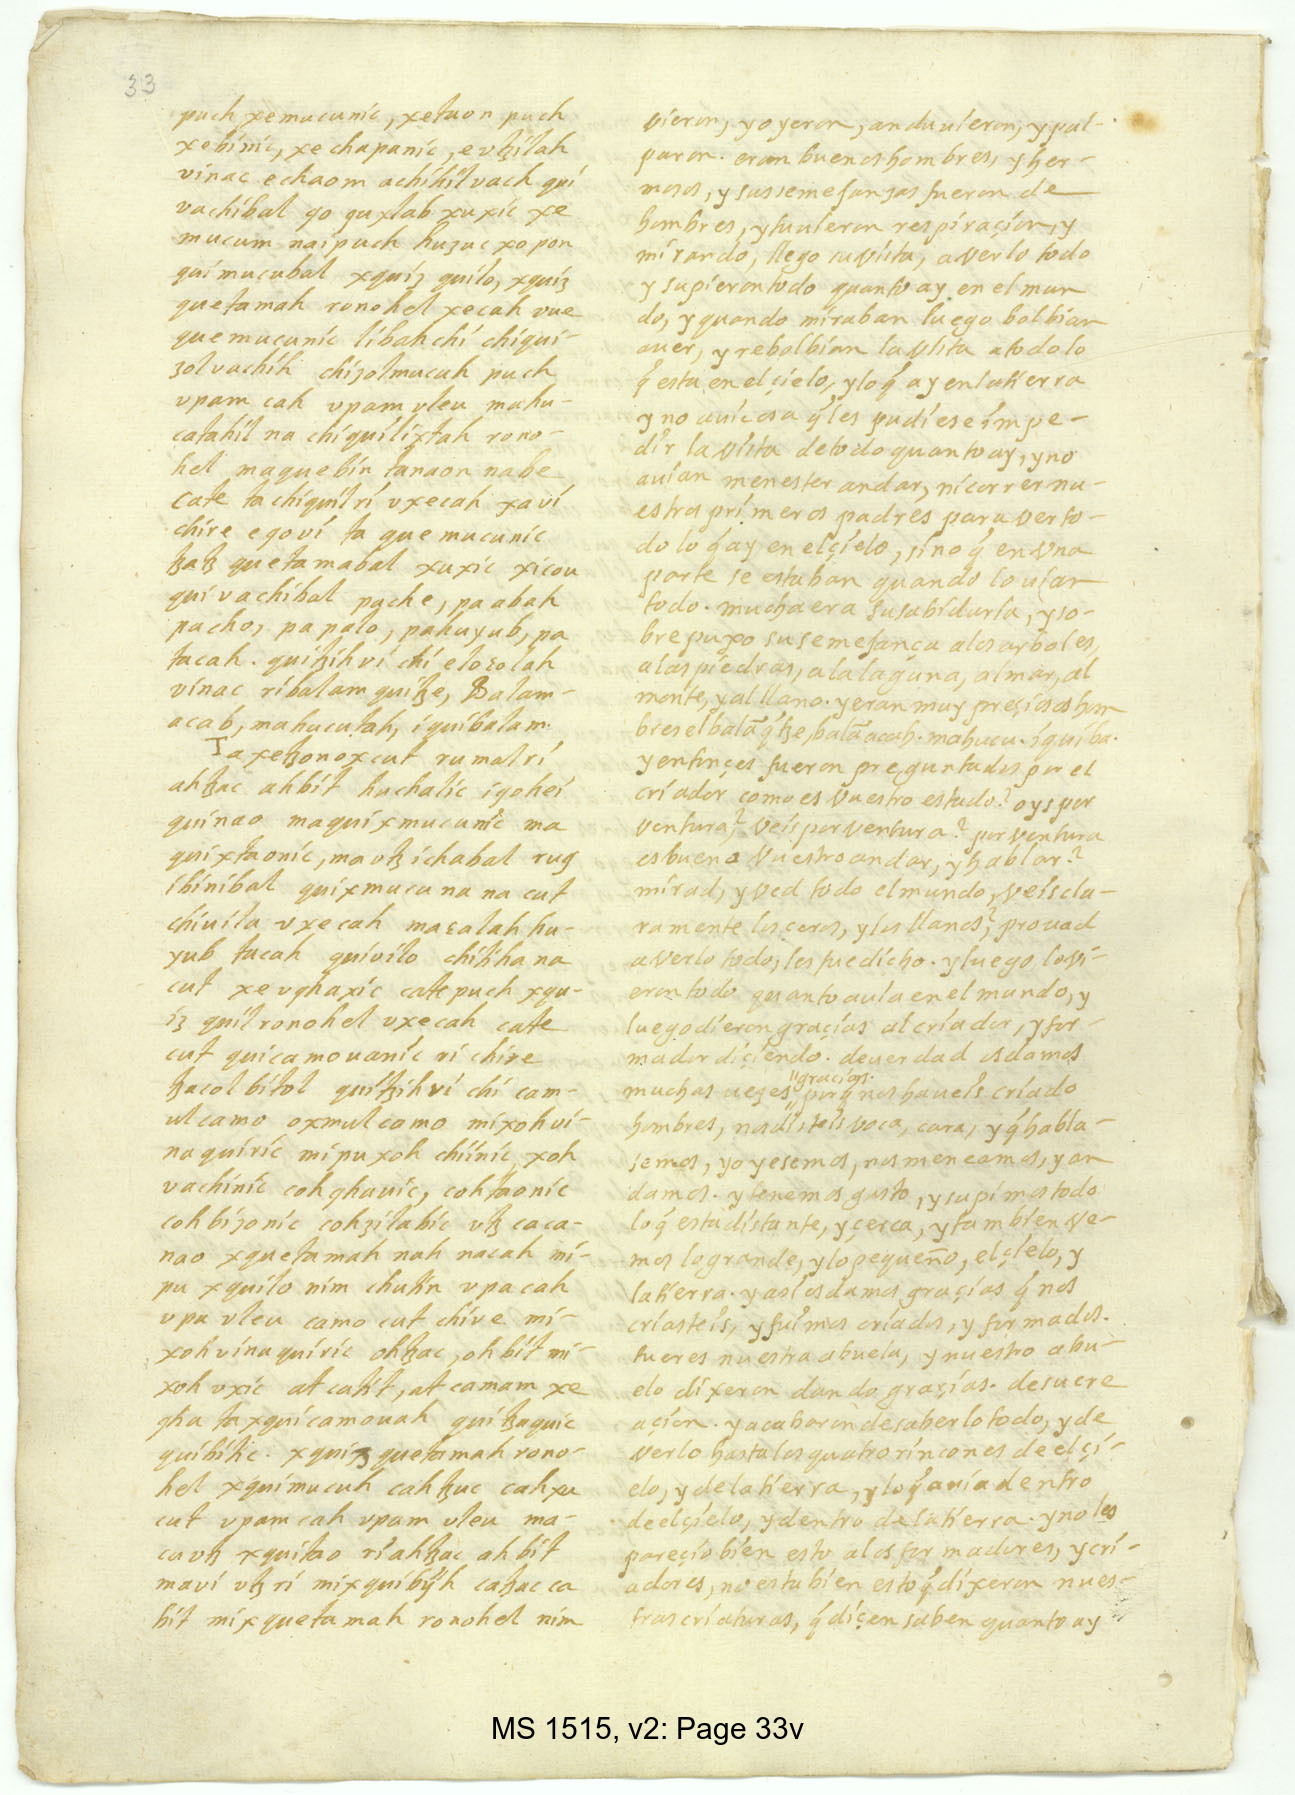 33
puch xemucunic, xetaon puch
xebinic, xechapanic, e vtzilah
vinac echaom achihil vach qui
vachibal qo quxlab xuxic xe
mucum naipuch huzuc xopon
quimucubal xquiz quilo, xquiz
quetamah ronohel xecah vue
quemucunic libahchi chiqui-
zol vachih chizolmucuh puch
vpam cah vpam vleu maha-
catahil na chiquilixtah rono-
hel maquebin tanaon nabe
cate tachiquil ri vxecah xavi
chire eqovi ta quemucunic
tzatz quetamabal xuxic xicou
qui vachibal pache, paabah
pacho, papalo, pahuyub, pa
tacah. quitzih vi chi elozolah
vinac ri balam quitze, Balam-
acab, mahucutah, iquibalam.
Ta xetzonox cut rumal ri
ahtzac ahbit huchalic iqohei
quinao maquixmucunic ma
quixtaonic, ma vtz ichabal ruq
ibinibal quixmucu na na cut
chivila vxecah macalah hu-
yub tacah quivilo chitiha na
cut xevqhaxic catepuch xqu-
iz quil ronohel vxecah cate
cut quicamouanic ri chire
tzacol bitol quitzih vi chi cam-
ul camo oxmul camo mixohvi-
naquiric mi pu xoh chiinic, xoh
vachinic cohqhauic, cohtaonic
cohbizonic cohzilabic vtz caca-
nao xquetamah nah nacah mi-
pu xquilo nim chutin vpa cah
vpa vleu camo cut chive mi-
xohvinaquiric ohtzac, ohbit mi-
xoh vxic at catit, at camam xe
qha ta xquicamouah quitzaquic
quibitic. xquiz quetamah rono-
hel xquimucuh cah tzuc cah xu
cut vpam cah vpam vleu ma-
cu vtz xquitao ri ahtzac ahbit
mavi vtz ri mixquibijh catzac ca
bit mixquetamah ronohel nim
vieron, y oyeron, anduuieron, y pal-
paron. eran buenos hombres, y her-
mosos, y sus semejanzas fueron de
hombres, y tuuieron respiraçion, y
mirando, llego su vista, a verlo todo
y supieron todo quanto ay en el mun
do, y quando miraban luego bolbian
a uer, y rebolbian la vista a todo lo
q̃ esta en el çielo, y lo q̃ ay en la tierra
y no auia cosa q̃ les pudiese impe-
dir la vista de todo quanto ay, y no
auian menester andar, ni correr nu-
estros primeros padres para ver to-
do lo q̃ ay en el çielo, sino q̃ en vna
parte se estaban quando lo uian
todo. mucha era su sabiduria, y so-
brepuxo su semejança a los arboles,
a las piedras, a la laguna, al mar, al
monte, y al llano. y eran muy preçiosos hom
bres el balã q̃tze, balã acab. mahucu. iquiba.
y entonçes fueron preguntados por el
criador como es vuestro estado? oys por
ventura? veis por ventura? por ventura
es bueno vuestro andar, y hablar?
mirad, y ved todo el mundo, veis cla-
ramente los çeros, y los llanos? prouad
a verlo todo, les fue dicho. y luego lo vi-
eron todo quanto auia en el mundo, y
luego dieron graçias al criador, y for-
mador diçiendo. de uerdad os damos
muchas uezes graçias. porq̃ nos haueis criado
hombres, nos disteis voca, cara, y q̃ habla-
semos, y oyesemos, nos meneamos, y an
damos. y tenemos gusto, y supimos todo
lo q̃ esta distante, y çerca, y tambien ve-
mos lo grande, y lo pequeño, el çielo, y
la tierra. y asi os damos graçias q̃ nos
criasteis, y fuimos criados, y formados.
tu eres nuestra abuela, y nuestro abu-
elo dixeron dando graçias. de su cre
açion. y acabaron de saberlo todo, y de
verlo hasta los quatro rincones de el çi-
elo, y de la tierra, y lo q̃ auia dentro
de el çielo, y dentro de la tierra. y no les
pareçio bien esto a los formadores, y cri-
adores, no esta bien esto q̃ dixeron nues-
tras criaturas, q̃ diçen saben quanto ay
MS 1515, v2: Page 33v